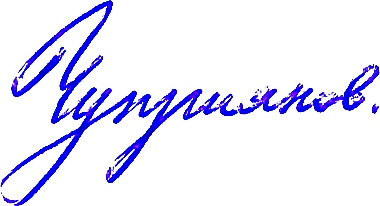 Чуприянов.